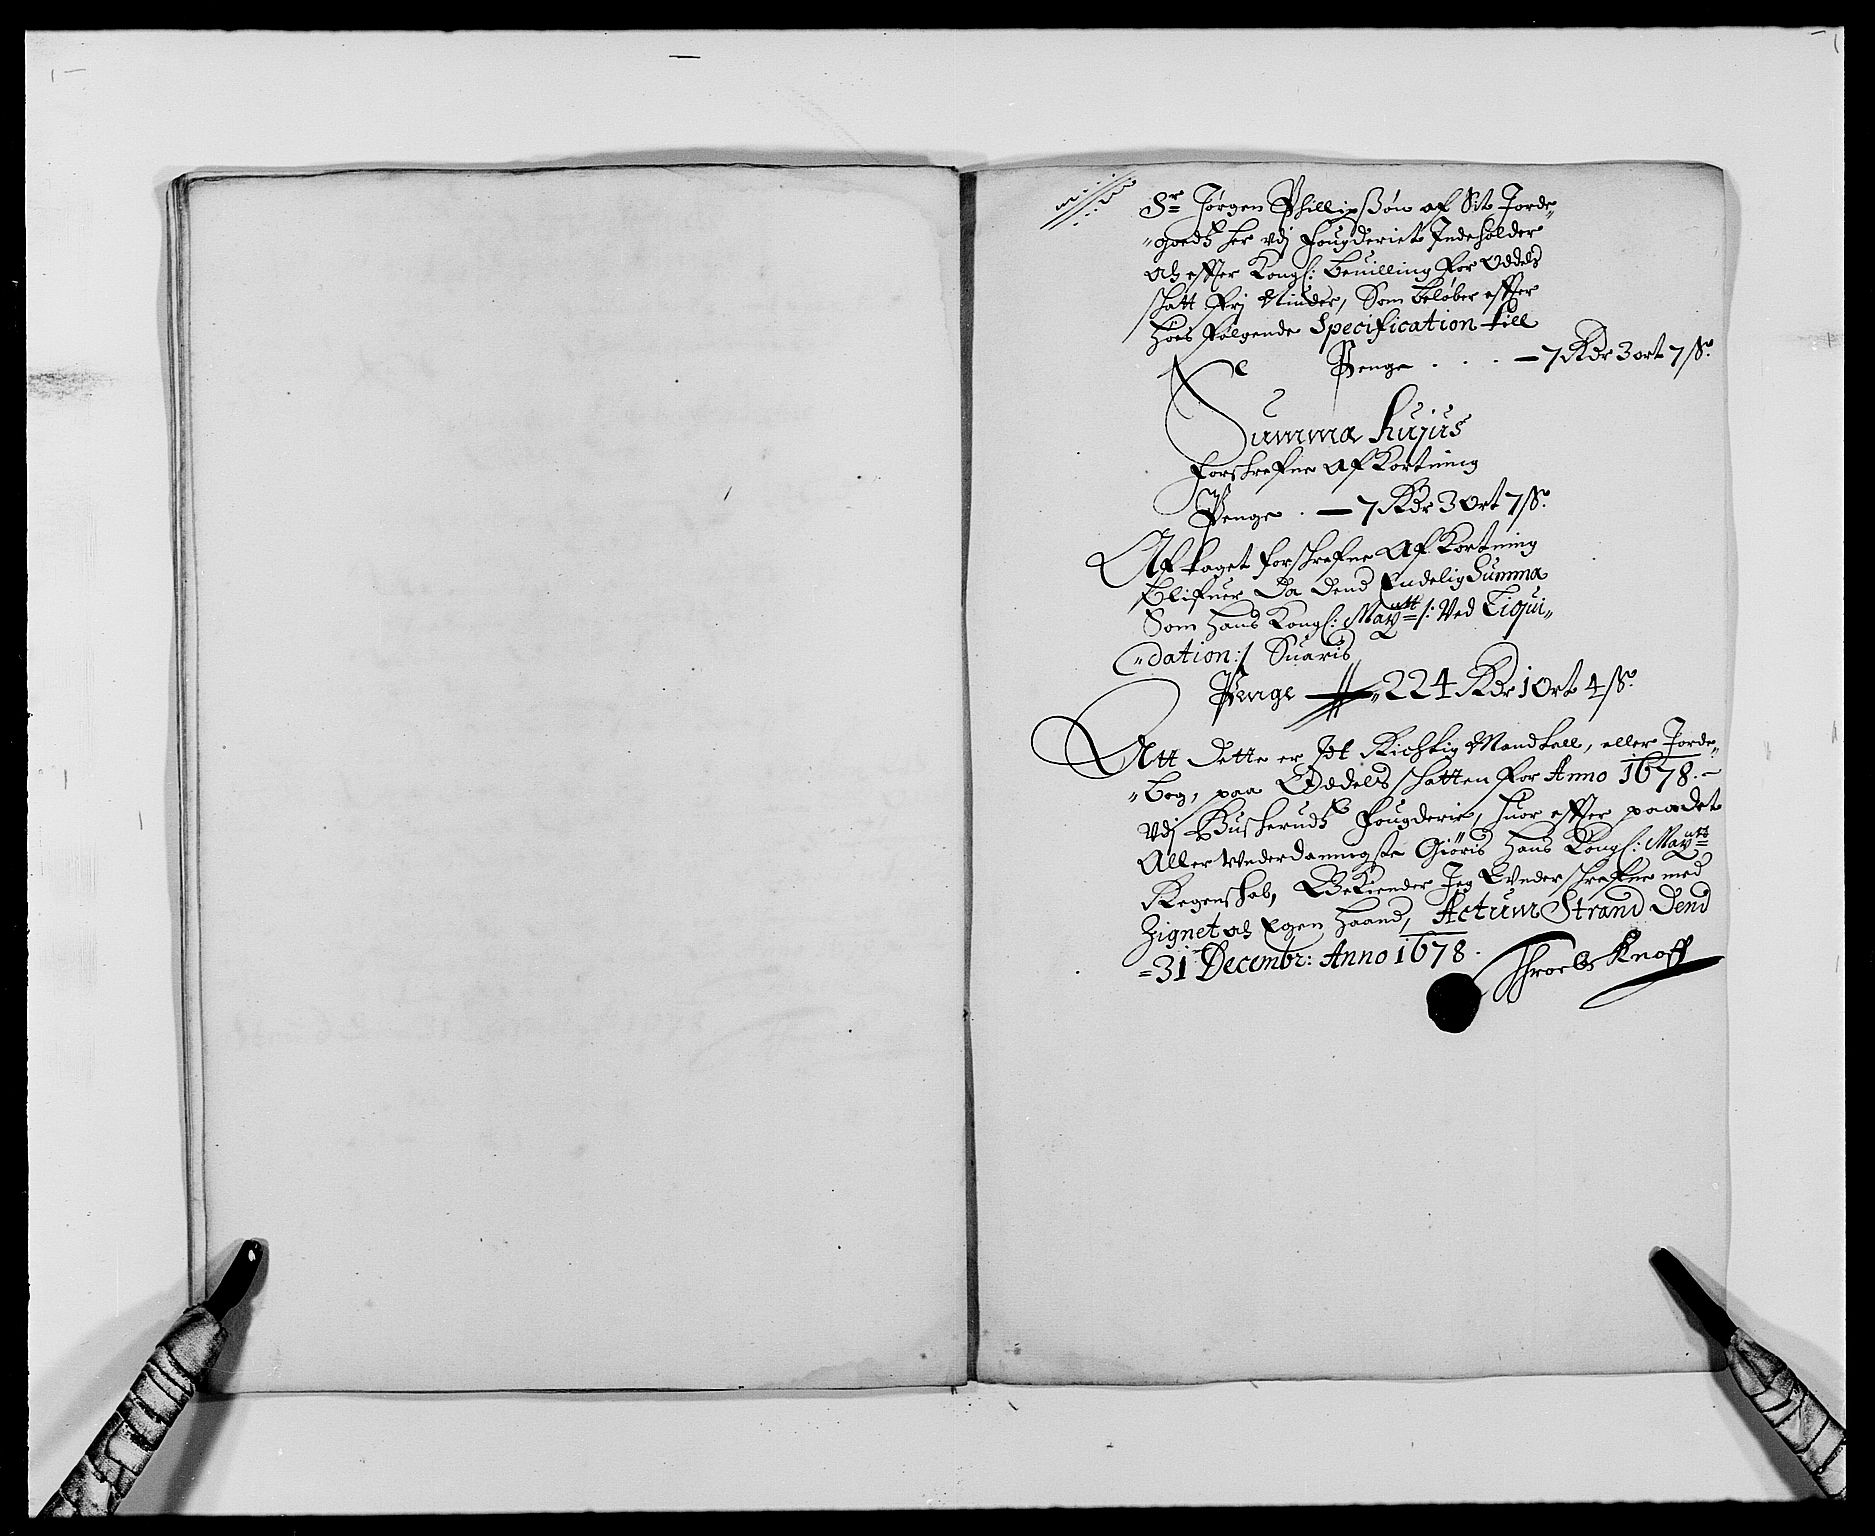 Sr Jørgen Phillipsøn af Sit Jorde-
-goedtz her vdj Fougderiet Indeholder
och effter Kongl: beuilling for Oddels
skatt frj Niuder, Som beløber effter
hoes følgende Specification till
Penge . . . — 7 Rdr 3 ort 7 ß.
Summa hujus
forskrefne Afkortning
Penge . — 7 Rdr 3 Ort 7 ß.
Aftaget forskrefne Afkortning
Blifuer Da Dend Endelig Summa
Som hans Kongl: Maytt /: Ved Liqui-
-dation :/ Suaris
Penge — 224 Rdr 1 Ort 4 ß.
Att dette er Jt Richtig Mandtall, eller Jorde-
-bog, paa Oddelsskatten for Anno 1678. -
vdj Buskerudtz Fougderie, huor effter paa det
Aller Vnderdannigste Giøris hans Kongl: Maytts
Regenskab, Bekiender Jeg Vnderskrefne med
Zignet och Egen Haand, Actum Strand Dend
31 Decembr: Anno 1678.
Throels Knoff